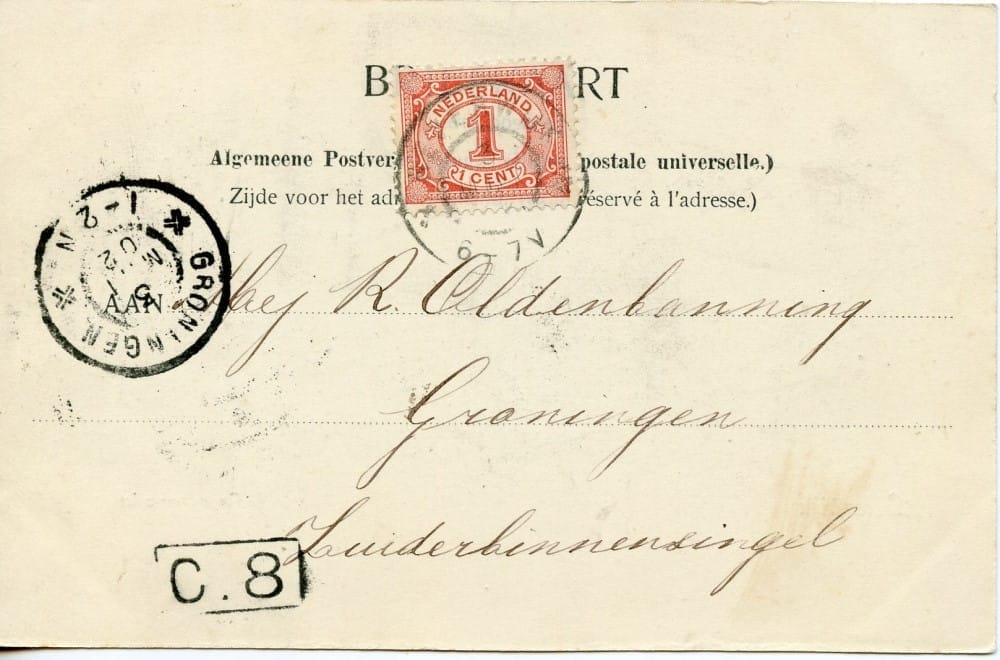 B RT
NEDERLAND
1
1 CENT
Algemeene Postver postale universelle.)
Zijde voor het adr éservé à l'adresse.)
6 - 7 V
GRONINGEN
1 - 2 N
AAN Mej R. Oldenbanning
Groningen
Zuiderbinnensingel
C.8